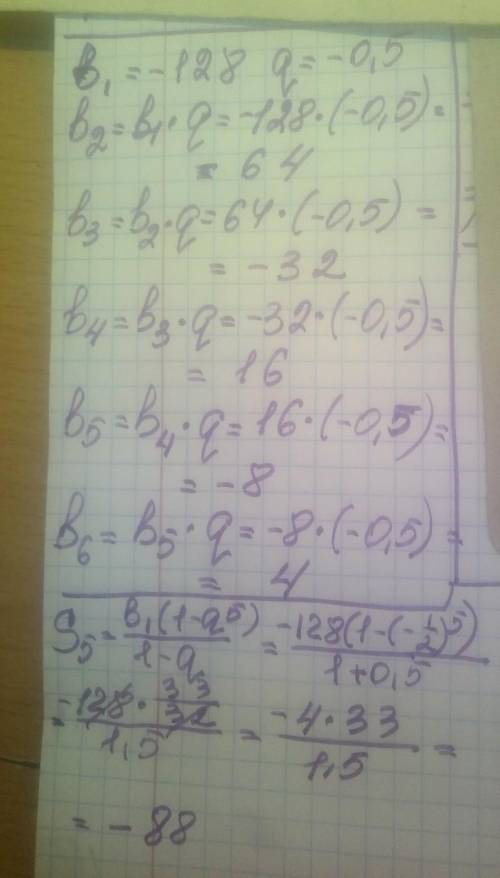 b₁ = -128 q = -0,5
b₂ = b₁ · q = -128 · (-0,5) =
= 64
b₃ = b₂ · q = 64 · (-0,5) =
= -32
b₄ = b₃ · q = -32 · (-0,5) =
= 16
b₅ = b₄ · q = 16 · (-0,5) =
= -8
b₆ = b₅ · q = -8 · (-0,5) =
= 4
S₅ = b₁(1-q⁵)/(1-q) = -128(1-(-1/2)⁵)/(1+0,5)
= (-128 · 33/32)/1,5 = (-4 · 33)/1,5 =
= -88